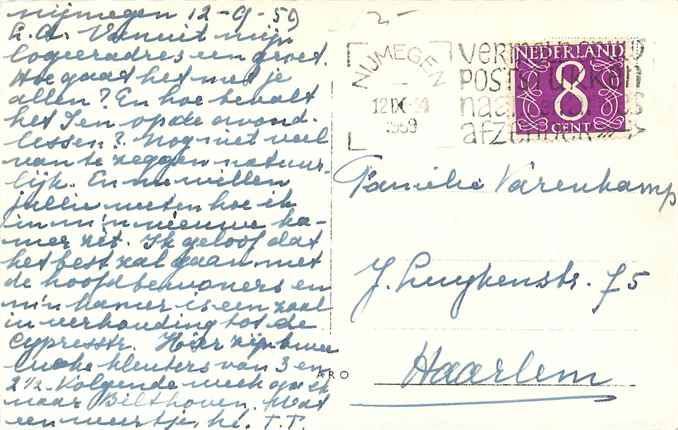 Nijmegen 12-9-59
L.A. Vanuit mijn
logeeradres een groet.
Hoe gaat het met je
allen? En hoe bevalt
het Ien op de avond-
lessen? Nog niet veel
van te zeggen natuur-
lijk. En nu willen
jullie weten hoe ik
in m'n nieuwe ka-
mer zit. Ik geloof dat
het best zal gaan met
de hoofdbewoners en
m'n kamer is een zaal
in verhouding tot de
Cypresstr. Hier zijn twee
leuke kleuters van 3 en
2½. Volgende week ga ik
naar Bilthoven. Wat
een weertje, hè. T.T.
2-
NIJMEGEN
12 IX
1959
POSTSTUKKEN
AFZENDER
NEDERLAND
8
CENT
Familie Varenkamp
J. Luykenstr. 75
Haarlem
ARO